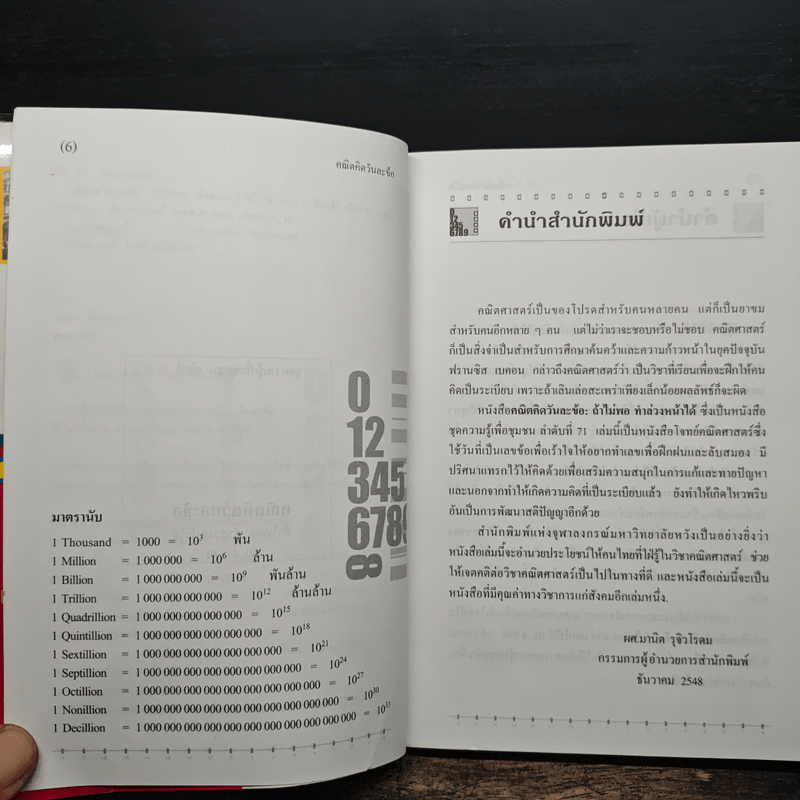 (6)
คณิตคิดวันละข้อ
0
12
345
6789
8
มาตรานับ
1 Thousand = 1000 = 10³ พัน
1 Million = 1 000 000 = 10⁶ ล้าน
1 Billion = 1 000 000 000 = 10⁹ พันล้าน
1 Trillion = 1 000 000 000 000 = 10¹² ล้านล้าน
1 Quadrillion = 1 000 000 000 000 000 = 10¹⁵
1 Quintillion = 1 000 000 000 000 000 000 = 10¹⁸
1 Sextillion = 1 000 000 000 000 000 000 000 = 10²¹
1 Septillion = 1 000 000 000 000 000 000 000 000 = 10²⁴
1 Octillion = 1 000 000 000 000 000 000 000 000 000 = 10²⁷
1 Nonillion = 1 000 000 000 000 000 000 000 000 000 000 = 10³⁰
1 Decillion = 1 000 000 000 000 000 000 000 000 000 000 000 = 10³³
0
12
345
6789
คำนำสำนักพิมพ์
คณิตศาสตร์เป็นของโปรดสำหรับคนหลายคน แต่ก็เป็นยาขม
สำหรับคนอีกหลาย ๆ คน แต่ไม่ว่าเราจะชอบหรือไม่ชอบ คณิตศาสตร์
ก็เป็นสิ่งจำเป็นสำหรับการศึกษาค้นคว้าและความก้าวหน้าในยุคปัจจุบัน
ฟรานซิส เบคอน กล่าวถึงคณิตศาสตร์ว่า เป็นวิชาที่เรียนเพื่อจะฝึกให้คน
คิดเป็นระเบียบ เพราะถ้าเลินเล่อสะเพร่าเพียงเล็กน้อยผลลัพธ์ก็จะผิด
หนังสือคณิตคิดวันละข้อ: ถ้าไม่พอ ทำล่วงหน้าได้ ซึ่งเป็นหนังสือ
ชุดความรู้เพื่อชุมชน ลำดับที่ 71 เล่มนี้เป็นหนังสือโจทย์คณิตศาสตร์ซึ่ง
ใช้วันที่เป็นเลขข้อเพื่อเร้าใจให้อยากทำเลขเพื่อฝึกฝนและลับสมอง มี
ปริศนาแทรกไว้ให้คิดด้วยเพื่อเสริมความสนุกในการแก้และทายปัญหา
และนอกจากทำให้เกิดความคิดที่เป็นระเบียบแล้ว ยังทำให้เกิดไหวพริบ
อันเป็นการพัฒนาสติปัญญาอีกด้วย
สำนักพิมพ์แห่งจุฬาลงกรณ์มหาวิทยาลัยหวังเป็นอย่างยิ่งว่า
หนังสือเล่มนี้จะอำนวยประโยชน์ให้คนไทยที่ใฝ่รู้ในวิชาคณิตศาสตร์ ช่วย
ให้เจตคติต่อวิชาคณิตศาสตร์เป็นไปในทางที่ดี และหนังสือเล่มนี้จะเป็น
หนังสือที่มีคุณค่าทางวิชาการแก่สังคมอีกเล่มหนึ่ง.
ผศ.มานิต รุจิวโรดม
กรรมการผู้อำนวยการสำนักพิมพ์
ธันวาคม 2548